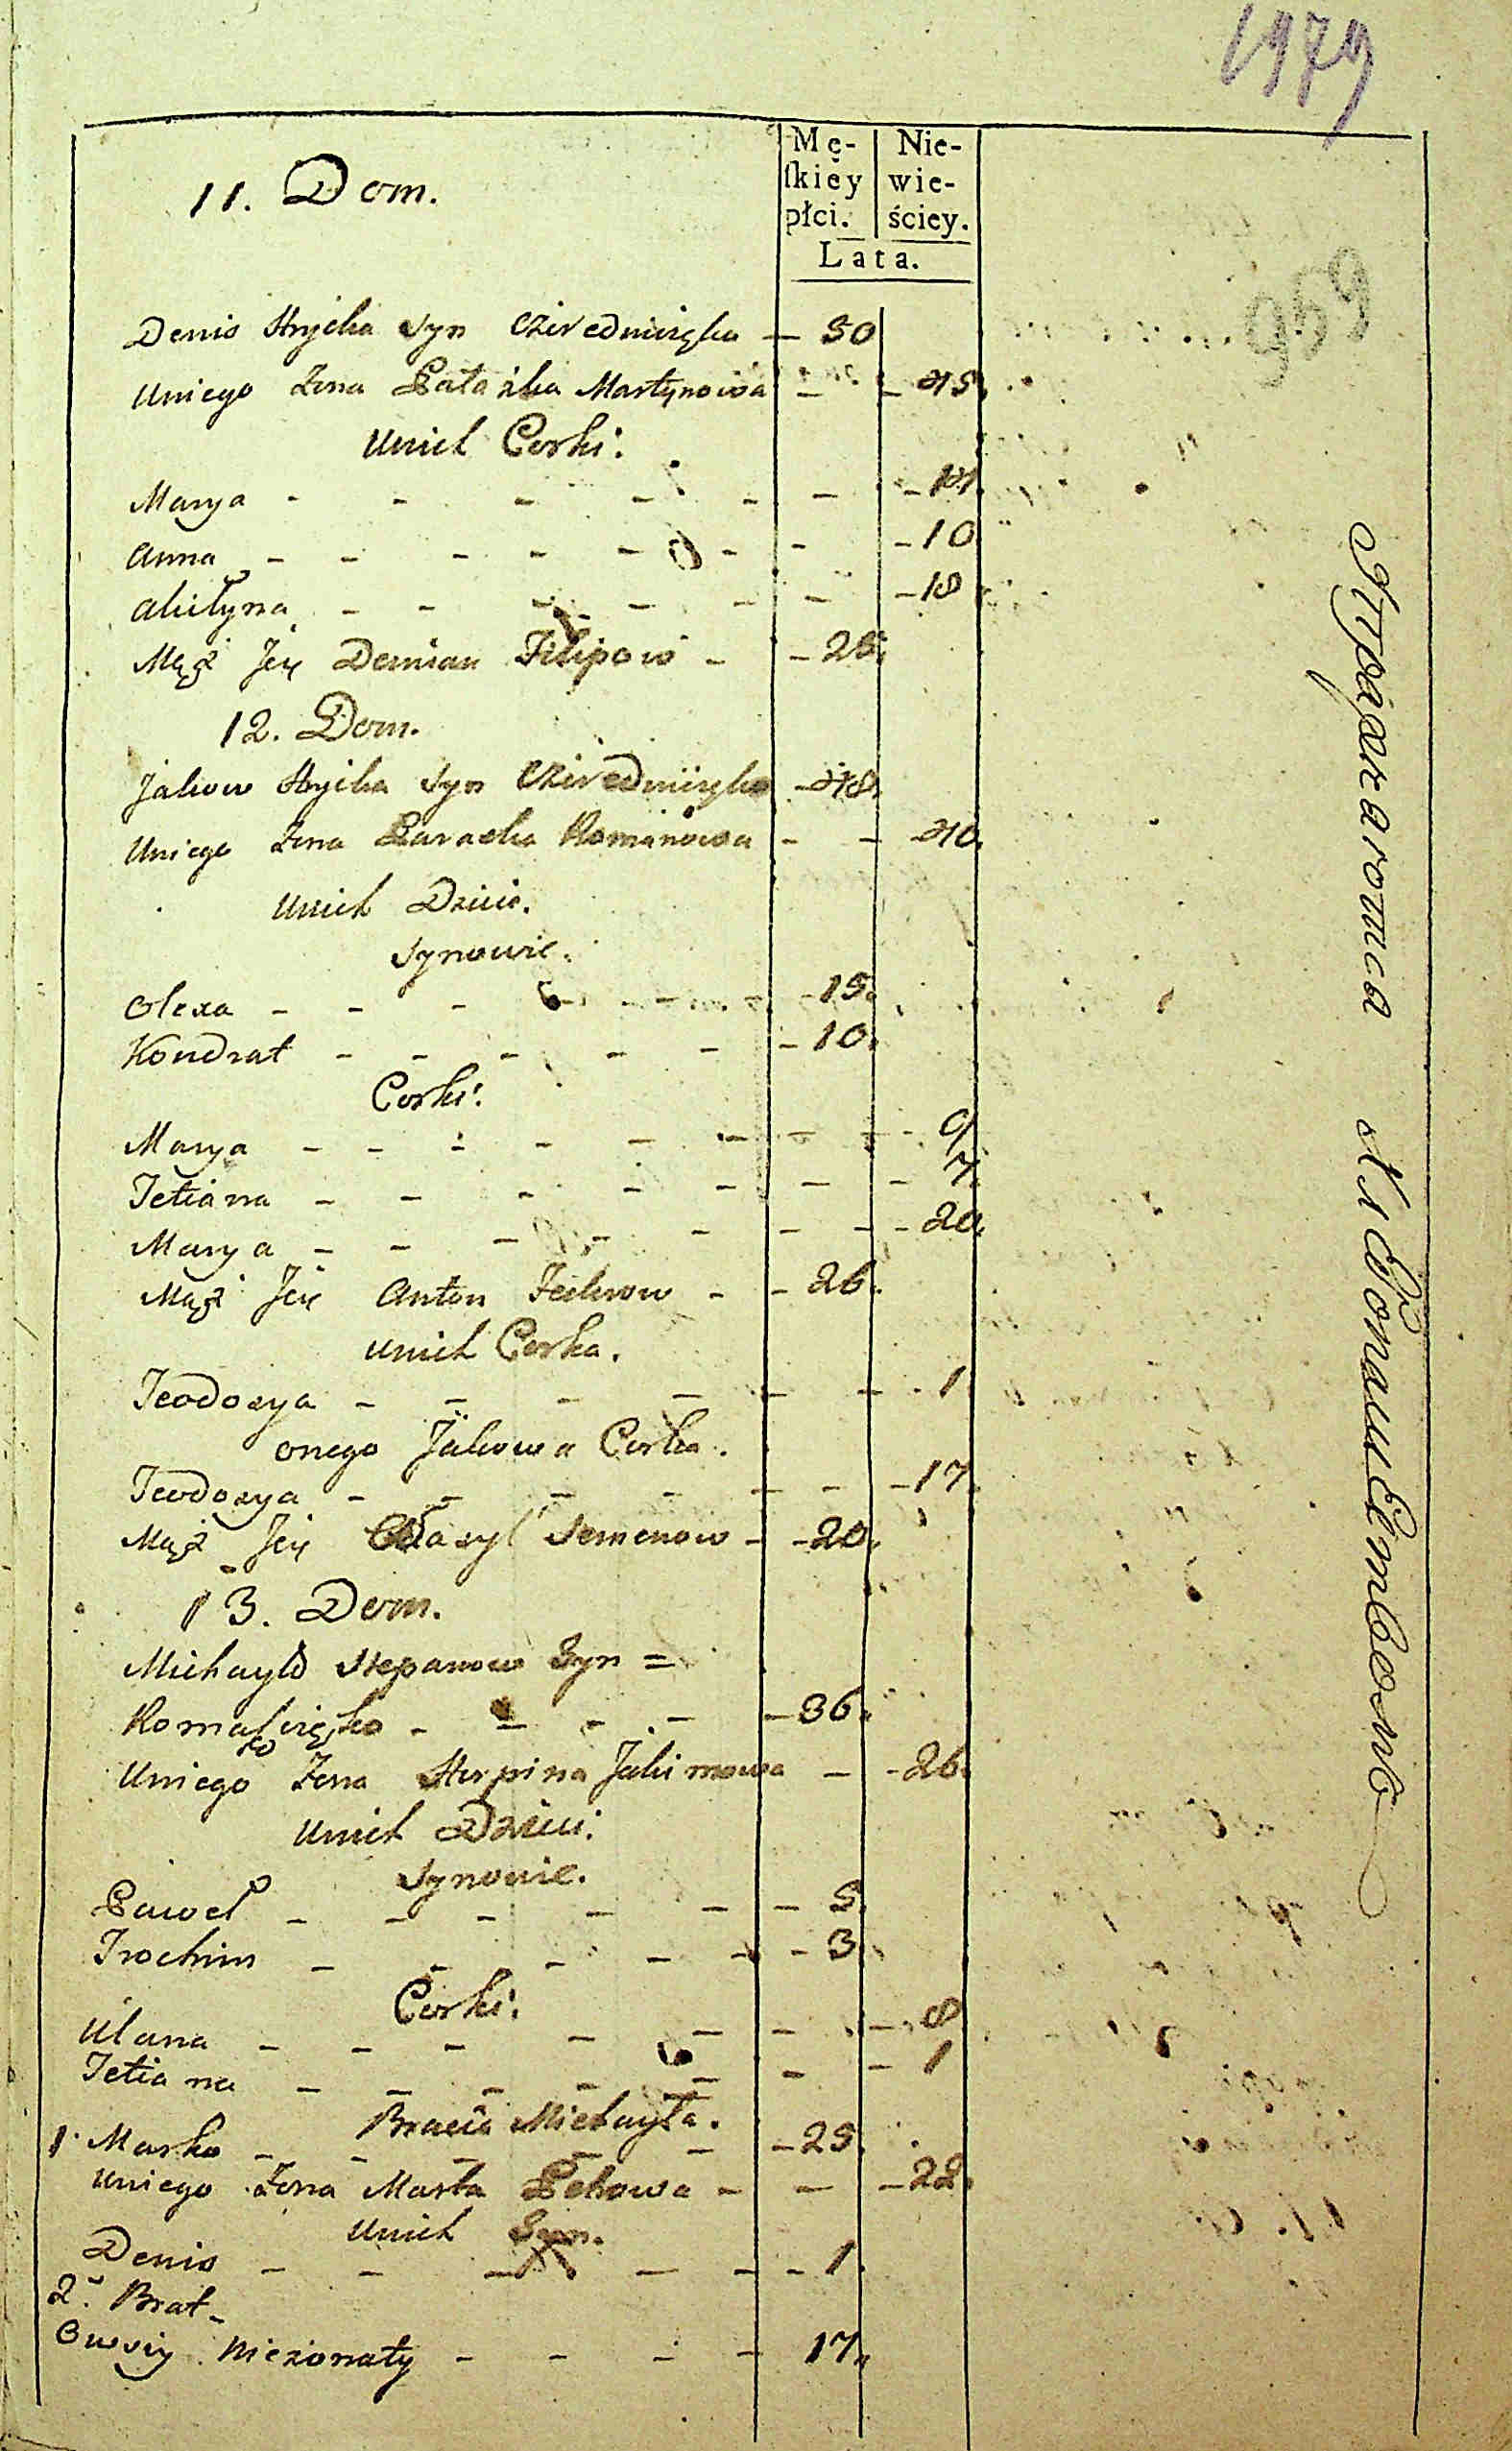 1979
Mę-
ſkiey
płci.
Nie-
wie-
ściey.
Lata.
959
11. Dom.
Denis Hrycka Syn - 50
Uniego Zona Pałażka Martynowa - - 45.
Unich Corki:
Marya - - - - - - - 14.
Anna - - - - - - - 10
Akilyna - - - - - - - 18
Mąż Jey Demian Filipow - - 25.
12. Dom.
Jakow Hrycka Syn - 48.
Uniego Zona Paraska Romanowa - - 40.
Unich Dzieci.
Synowie.
Olexa - - - - - - 15.
Kondrat - - - - - - 10.
Corki:
Marya - - - - - - - - 9
Tetiana - - - - - - - 7.
Marya - - - - - - - - 20.
Mąż Jey Anton - - 26.
Unich Corka.
Teodosya - - - - - - - 1
onego Jakowa Corka.
Teodosya - - - - - - - 17.
Mąż Jey Wasyl Semenow - - 20.
13. Dom.
Michayło Stepanow Syn =
- - - - - 36.
Uniego Zona Jakimowa - - 26.
Unich Dzieci:
Synowie.
Paweł - - - - - - 5.
Trochim - - - - - - 3.
Corki:
Ulana - - - - - - - - 8
Tetiana - - - - - - - - 1
Bracia Michayła.
1. Marko - - - - - - 25.
Uniego Zona Marta - - - 22.
Unich Syn.
Denis - - - - - - 1.
2. Brat -
Owsiy Nieżonaty - - - - 17.